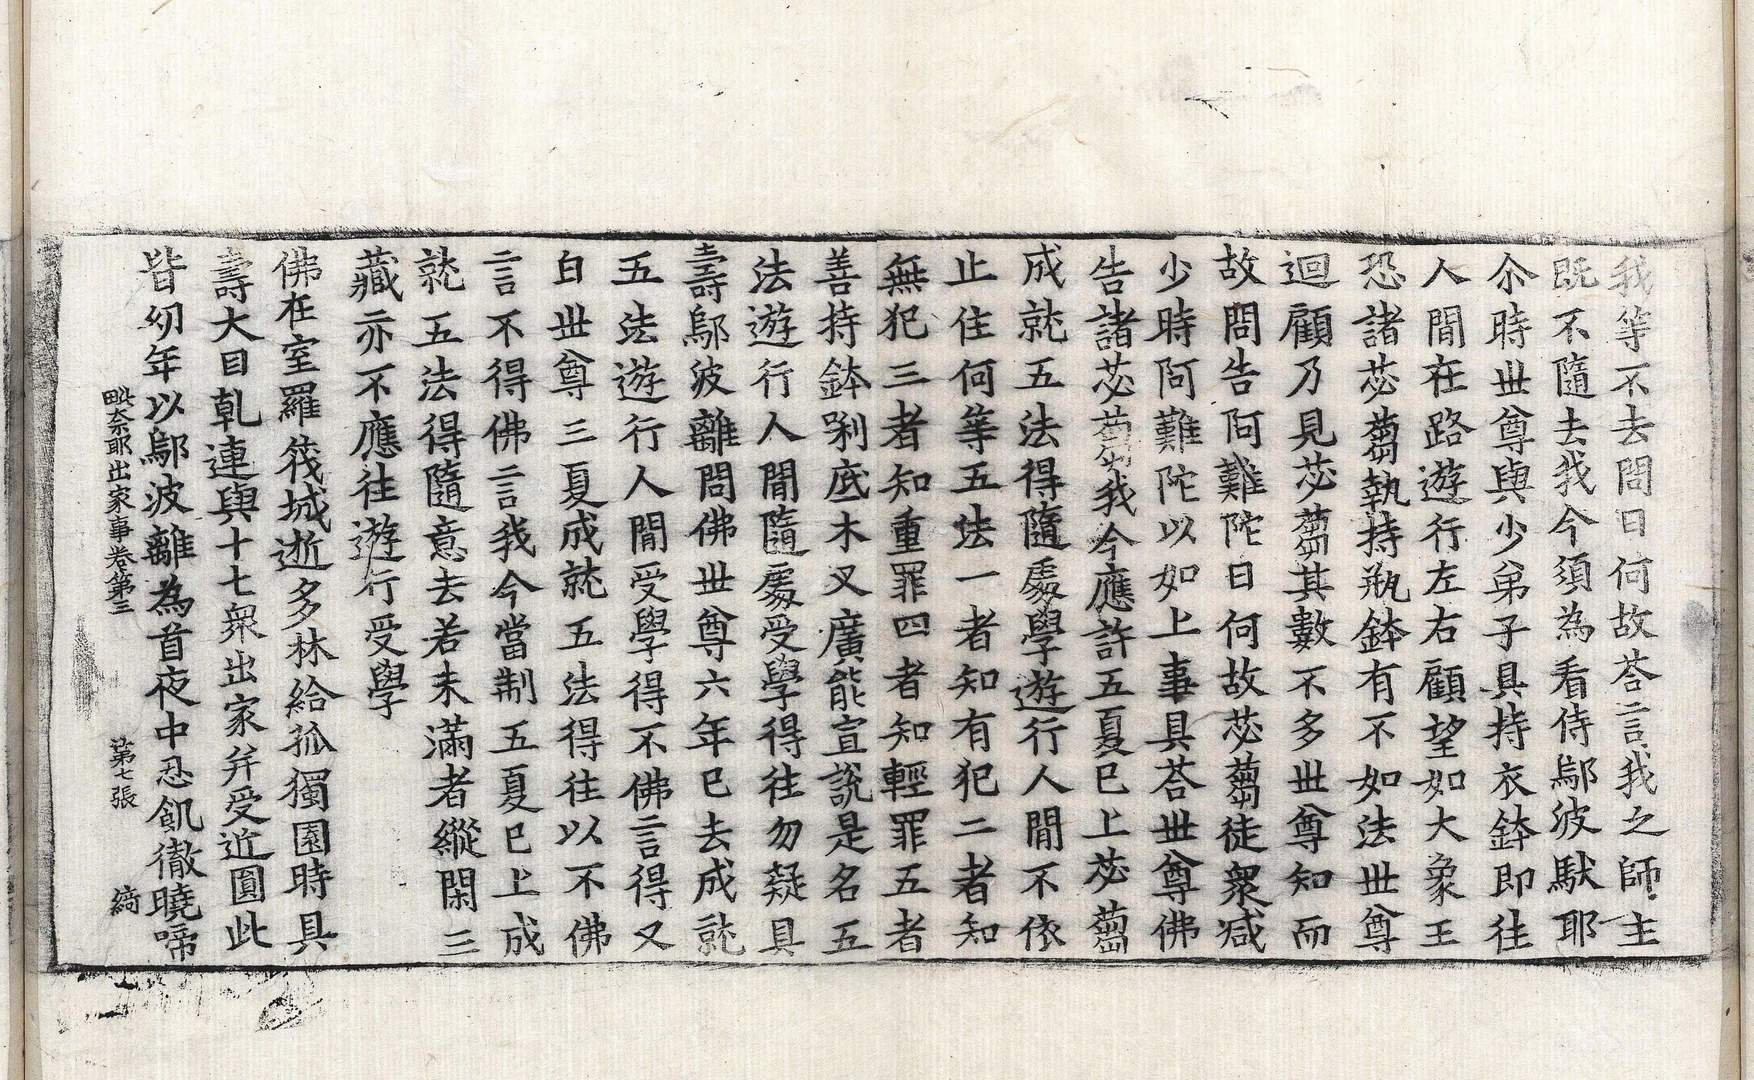 我等不去問曰何故荅言我之師主
既不隨去我今須為看侍鄔波馱耶
尒時世尊與少弟子具持衣鉢即往
人閒在路遊行左右顧望如大象王
恐諸苾蒭執持瓶鉢有不如法世尊
迴顧乃見苾蒭其數不多世尊知而
故問告阿難陀曰何故苾蒭徒衆減
少時阿難陀以如上事具荅世尊佛
告諸苾蒭我今應許五夏已上苾蒭
成就五法得隨處學遊行人閒不依
止住何等五法一者知有犯二者知
無犯三者知重罪四者知輕罪五者
善持鉢剌底木叉廣能宣說是名五
法遊行人閒隨處受學得往勿疑具
壽鄔波離問佛世尊六年已去成就
五法遊行人閒受學得不佛言得又
白世尊三夏成就五法得往以不佛
言不得佛言我今當制五夏已上成
就五法得隨意去若未滿者縱閑三
藏亦不應往遊行受學
佛在室羅筏城逝多林給孤獨園時具
壽大目乹連與十七衆出家幷受近圓此
皆幼年以鄔波離為首夜中忍飢徹曉啼
毗奈耶出家事卷第三 第七張 綺